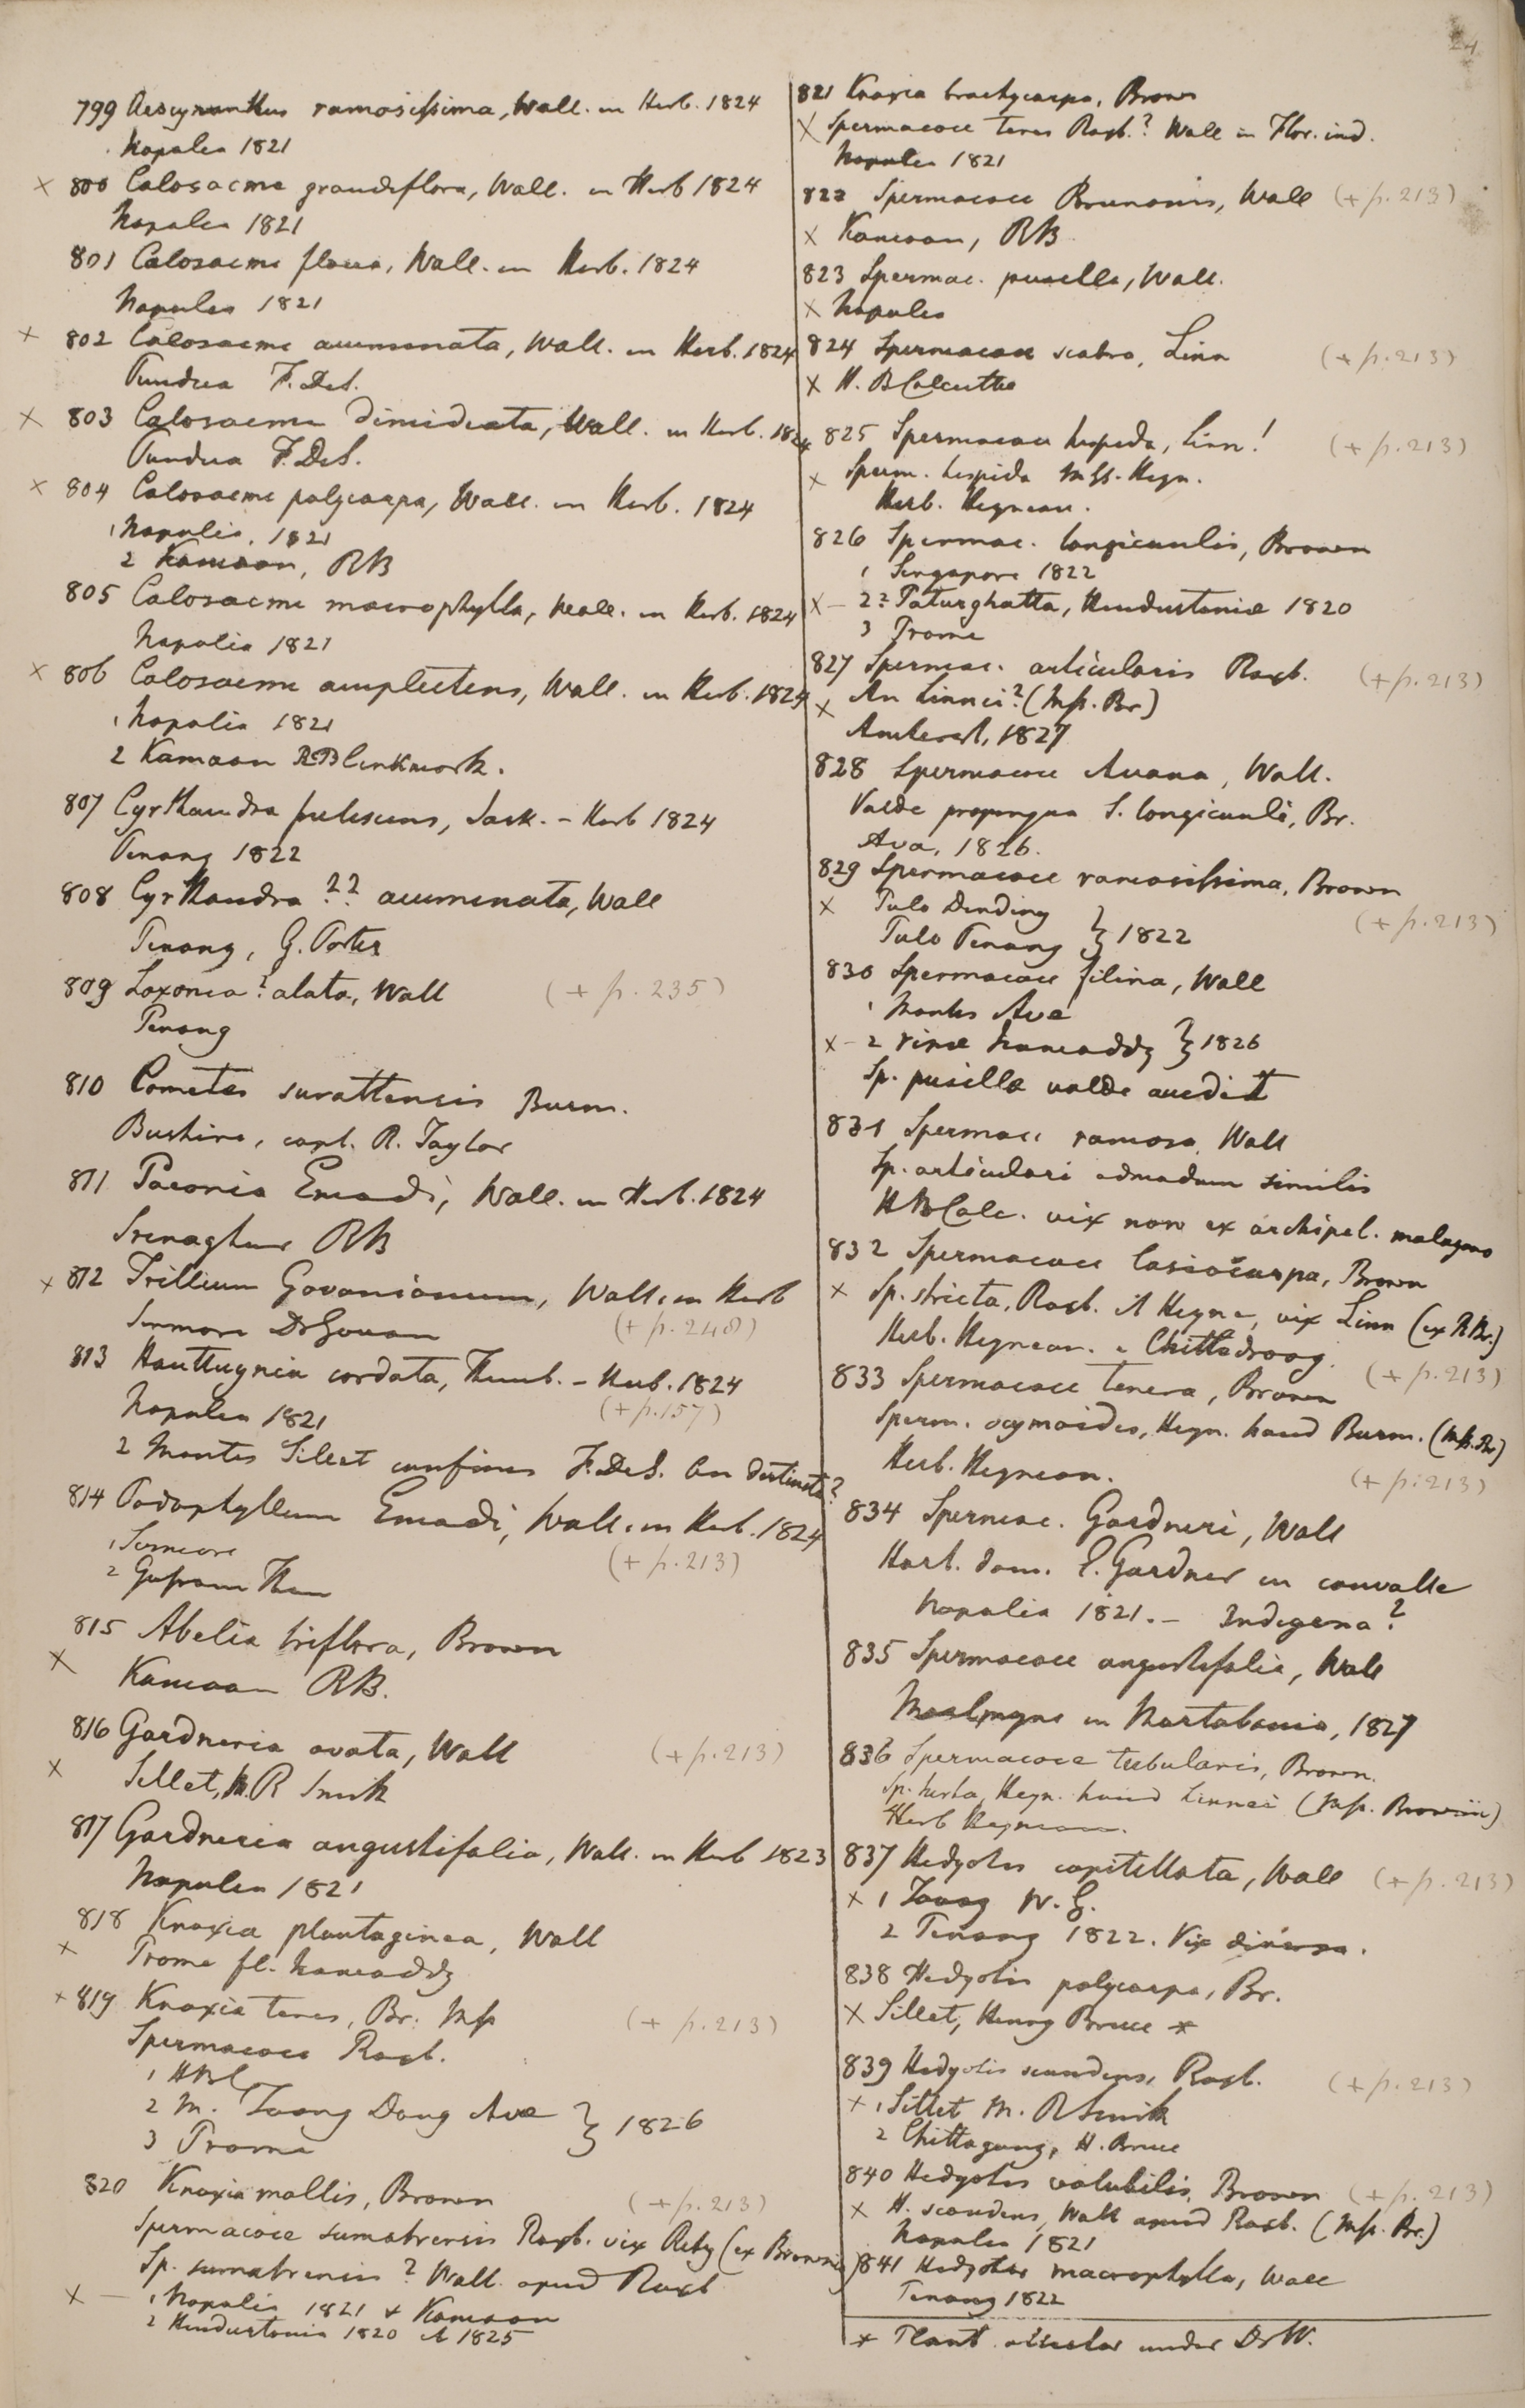 24
799 Aescynanthus ramosissima, Wall. in Herb. 1824
Napalia 1821
× 800 Calosacme grandiflora, Wall. in Herb 1824
Napalia 1821
801 Calosacme flava, Wall. in Herb. 1824
Napalia 1821
× 802 Calosacme acuminata, Wall. in Herb. 1824
Pundua F. DeS.
× 803 Calosacme dimidiata, Wall. in Herb. 1824
Pundua F. DeS.
× 804 Calosacme polycarpa, Wall. in Herb. 1824
1 Napalia. 1821
2 Kamaon, RB
805 Calosacme macrophylla, Wall. in Herb. 1824
Napalia 1821
× 806 Calosacme amplectens, Wall. in Herb. 1824
1 Napalia 1821
2 Kamaon R Blinkwork.
807 Cyrthandra frutescens, Jack. – Herb 1824
Penang 1822
808 Cyrthandra ?? acuminata, Wall
Penang, G. Porter
809 Loxonia? alata, Wall (+ p. 235)
Penang
810 Cometes surattensis Burm.
Bushire, capt. R. Taylor
811 Paeonia Emodi, Wall. in Herb. 1824
Srenaghur RB
× 812 Trillium Govanianum, Wall. in Herb
Sirmore Dr Govan (+ p. 248)
813 Houttuynia cordata, Thunb. – Herb. 1824
Napalia 1821 (+ p. 157)
2 Montes Silhet confines F. DeS. an distincta?
814 Podophyllum Emodi, Wall. in Herb. 1824
1 Sirmore (+ p. 213)
2 Gosain Than
815 Abelia triflora, Brown
× Kamaon RB.
816 Gardneria ovata, Wall (+ p. 213)
× Sillet, M. R Smith
817 Gardneria angustifolia, Wall. in Herb 1823
Napalia 1821
818 Knoxia plantaginea, Wall
× Prome fl. Irawaddy
× 819 Knoxia teres, Br. Mss (+ p. 213)
Spermacoce Roxb.
1 HBC
2 M. Toong Dong Avae } 1826
3 Prome
820 Knoxia mollis, Brown (+ p. 213)
Spermacoce sumatrensis Roxb. vix Retz (ex Brownio)
Sp. sumatrensis? Wall. apud Roxb
× – 1 Napalia 1821 & Kamaon
2 Hindustania 1820 et 1825
821 Knoxia brachycarpa, Brown
× Spermacoce teres Roxb.? Wall in Flor. ind.
Napalia 1821
822 Spermacoce Brunonis, Wall (+ p. 213)
× Kamaon, RB
823 Spermac. pusilla, Wall.
× Napalia
824 Spermacoce scabra, Linn (+ p. 213)
× H. B Calcutta
825 Spermacoce hispida, Linn! (+ p. 213)
× Sperm. hispida Mss. Heyn.
Herb. Heynean.
826 Spermac. longicaulis, Brown
1 Singapore 1822
× – 2? Paturghatta, Hindustaniae 1820
3 Prome
827 Spermac. articularis Roxb. (+ p. 213)
× An Linnei? (Mss. Br)
Amherst, 1827
828 Spermacoce Avana, Wall.
Valde propinqua S. longicauli, Br.
Ava, 1826.
829 Spermacoce ramosissima, Brown
× Pulo Dinding (+ p. 213)
Pulo Penang } 1822
830 Spermacoce filina, Wall
1 Montes Ava
× – 2 ripae Irawaddy } 1826
Sp. pusillae valde accedit
831 Spermac. ramosa, Wall
Sp. articulari admodum similis
H B Calc. vix non ex archipel. malayano
832 Spermacoce lasiocarpa, Brown
× Sp. stricta, Roxb. et Heyne, vix Linn (ex R Br.)
Herb. Heynean. e Chittledroog.
833 Spermacoce tenera, Brown (+ p. 213)
Sperm. ocymoides, Heyn. haud Burm. (Mss. Br)
Herb. Heynean. (+ p. 213)
834 Spermac. Gardneri, Wall
Hort. dom. E. Gardner in convalle
Napalia 1821. – Indigena?
835 Spermacoce angustifolia, Wall
Moalmyne in Martabania, 1827
836 Spermacoce tubularis, Brown.
Sp. hirta, Heyn. haud Linnei (Mss. Brownii)
Herb Heynean.
837 Hedyotis capitellata, Wall (+ p. 213)
× 1 Tavoy W. G.
2 Penang 1822. Vix diversa.
838 Hedyotis polycarpa, Br.
× Sillet, Henry Bruce *
839 Hedyotis scandens, Roxb. (+ p. 213)
× 1 Sillet M. R Smith
2 Chittagong, H. Bruce
840 Hedyotis volubilis, Brown (+ p. 213)
× H. scandens, Wall apud Roxb. (Mss. Br.)
Napalia 1821
841 Hedyotis macrophylla, Wall
Penang 1822
* Plant collector under Dr W.